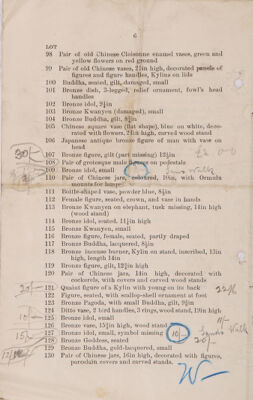 6
LOT
98 Pair of old Chinese Cloisonne enamel vases, green and
yellow flowers on red ground
99 Pair of old Chinese vases, 21in high, decorated panels of
figures and figure handles, Kylins on lids
100 Buddha, seated, gilt, damaged, small
101 Bronze dish, 3-legged, relief ornament, fowl's head
handles
102 Bronze idol,
103 Bronze Kwanyen (damaged), small
104 Bronze Buddha, gilt,
105 Chinese square vase (flat shape), blue on white, deco-
rated with flowers, high, curved wood stand
106 Japanese antique bronze figure of man with vase on
head
107 Bronze figure, gilt (part missing)
108 Pair of grotesque male figures on pedestals
109 Bronze idol, small
110 Pair of Chinese jars, coloured, with Ormolu
mounts for lamps
111 Bottle-shaped vase, powder blue,
112 Female figure, seated, crown, and vase in hands
113 Bronze Kwanyen on elephant, tusk missing, 14in high
(wood stand)
114 Bronze idol, seated, high
115 Bronze Kwanyen, small
116 Bronze figure, female, seated, partly draped
117 Bronze Buddha, lacquered,
118 Bronze incense burner, Kylin on stand, inscribed, 13in
high, length 14in
119 Bronze figure, gilt, high
120 Pair of Chinese jars, 14in high, decorated with
cockerels, with covers and carved wood stands
121 Quaint figure of a Kylin with young on its back
122 Figure, seated, with scallop-shell ornament at foot
123 Bronze Pagoda, with small Buddha, gilt,
124 Ditto vase, 2 bird handles, 2 rings, wood stand, 17in high
125 Bronze idol, small
126 Bronze vase, high, wood stand
127 Bronze idol, small, symbol missing
128 Bronze Goddess, seated
129 Bronze Buddha, gold-lacquered, small
130 Pair of Chinese jars, 16in high, decorated with figures,
porcelain covers and carved stands.
30/-
10/-
20/-